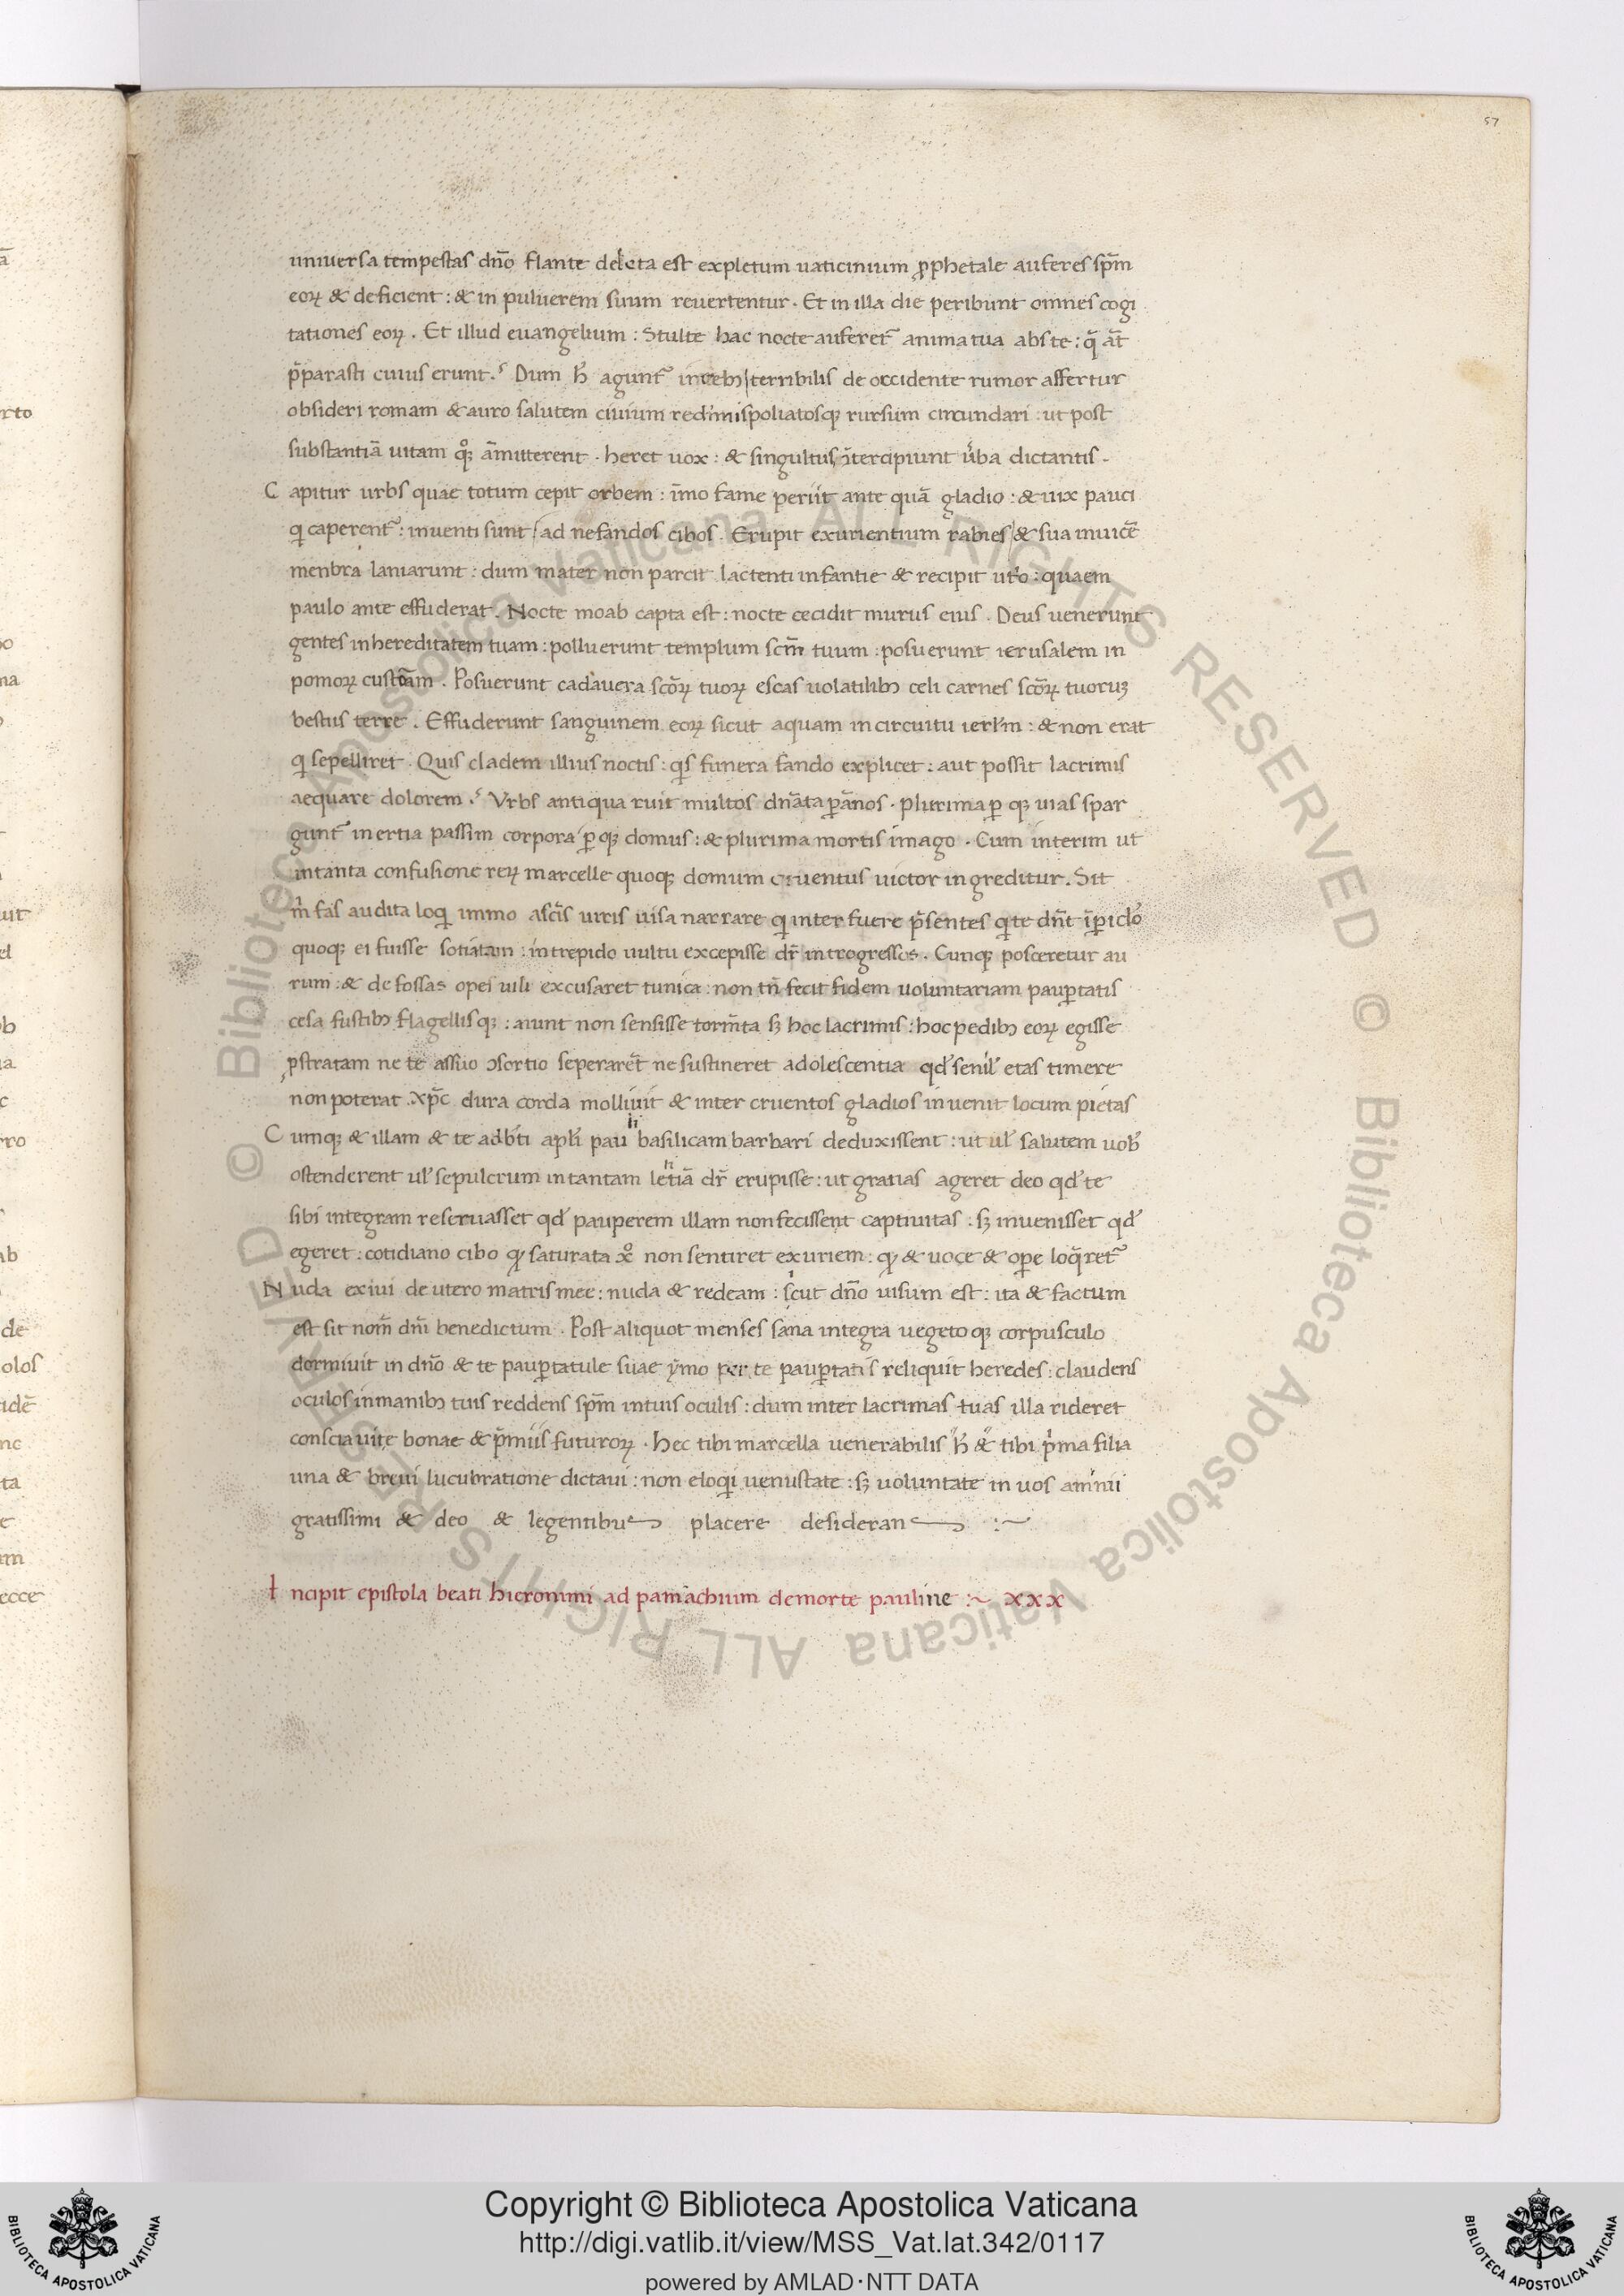 57
universa tempestas dn̄o flante deleta est expletum uaticinium ꝓphetale auferes sp̄m
eoꝝ & deficient : & in puluerem suum revertentur . Et in illa die peribunt omnes cogi
tationes eoꝝ . Et illud evangelium : Stulte hac nocte auferet᷑ anima tua abs te : q̄ aūt
p̄parasti cuius erunt . Dum h̄ agunt᷑ terribilis de occidente rumor affertur
obsideri romam & auro salutem civium redimi spoliatosqꝫ rursum circundari : ut post
substantiā uitam qͦqꝫ āmitterent . heret uox : & singultus ītercipiunt ủba dictantis .
Capitur urbs quae totum cepit orbem : īmo fame periit ante quā gladio : & uix pauci
qͥ caperent᷑ : inventi sunt / ad nefandos cibos . Erupit exurientium rabies / & sua invicē
menbra laniarunt : dum mater non parcit lactenti infantie & recipit utͦo : quaem
paulo ante effuderat . Nocte moab capta est : nocte cecidit murus eius . Deus venerunt
gentes in hereditatem tuam : polluerunt templum scm̄ tuum : posuerunt ierusalem in
pomoꝝ custōam . Posuerunt cadavera scōꝝ tuoꝝ escas uolatilibꝫ celi carnes scōꝝ tuoruꝫ
bestiis terre . Effuderunt sanguinem eoꝝ sicut aquam in circuitu ierl̄m : & non erat
qͥ sepelliret . Quis cladem illius noctis : qͥs funera fando explicet : aut possit lacrimis
aequare dolorem . Vrbs antiqua ruit multos dn̄ata ꝑ ānos . plurima ꝑ qꝫ uias spar
gunt᷑ inertia passim corpora ꝑ qꝫ domus : & plurima mortis imago . Cum interim ut
in tanta confusione reꝝ marcelle quoqꝫ domum cruentus uictor ingreditur . Sit
m̍ fas audita loqͥ immo a scīs uiris uisa narrare qͥ interfuere p̄sentes qͥ te dn̄t ī ꝑiclo
quoqꝫ ei fuisse sotiatam : intrepido uultu excepisse dr̄ introgressos . Cunqꝫ posceretur au
rum : & defossas opes uili excusaret tunica : non tn̄ fecit fidem uoluntariam pauꝑtatis
cesa fustibꝫ flagellisqꝫ : aiunt non sensisse torm̄ta sꝫ hoc lacrimis : hoc pedibꝫ eoꝝ egisse
ꝓstratam ne te assuo ↄsortio seperarēt ne sustineret adolescentia qđ senil̓ etas timere
non poterat . xp̄c dura corda mollivit & inter cruentos gladios invenit locum pietas
Cumqꝫ & illam & te ad bt̄i apl̓i pauli basilicam barbari deduxissent : ut ul̓ salutem uob̓
ostenderent ul̓ sepulcrum in tantam letiā dr̄ erupisse : ut gratias ageret deo qđ te
sibi integram reservasset qđ pauperem illam non fecissent captivitas : sꝫ invenisset qđ
egeret : cotidiano cibo qͥ saturata xͦ non sentiret exuriem : qͥ & uoce & oꝑe loq̄ret᷑
Nuda exivi de utero matris mee : nuda & redeam : sicut dn̄o uisum est : ita & factum
est sit nom̄ dn̄i benedictum . Post aliquot menses sana integra uegetoqꝫ corpusculo
dormivit in dn̄o & te pauꝑtatule suae ẏmo per te pauꝑtatis reliquit heredes : claudens
oculos in manibꝫ tuis reddens sp̄m in tuis oculis : dum inter lacrimas tuas illa rideret
conscia uite bonae & p̄miis futuroꝝ . Hec tibi marcella uenerabilis h̄ & tibi pͥma filia
una & brevi lucubratione dictavi : non eloqͥi uenustate : sꝫ uoluntate in uos animi
gratissimi & deo & legentibus placere desiderans
Incipit epistola beati hieronimi ad pamachium de morte pauline :~ xxx
© Biblioteca Apostolica Vaticana ALL RIGHTS RESERVED © Biblioteca Apostolica Vaticana ALL RIGHTS RESERVED
Copyright © Biblioteca Apostolica Vaticana
http://digi.vatlib.it/view/MSS_Vat.lat.342/0117
powered by AMLAD·NTT DATA
BIBLIOTECA APOSTOLICA VATICANA
BIBLIOTECA APOSTOLICA VATICANA